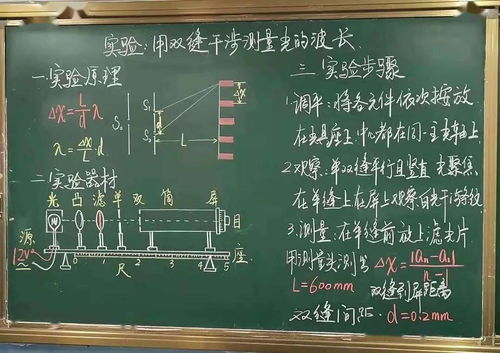 实验:用双缝干涉测量光的波长
一.实验原理
Δx=L/d λ
λ=Δx/L d
S₀ S₁ S₂ d L Δx
二.实验器材
光 凸 滤 单 双 筒 屏
目
源
12V
0 1 2 3 4 5 座
尺
三.实验步骤
1.调平:将各元件依次按放
在夹具座上中心都在同一主轴上
2.观察.单双缝平行且竖直 光聚焦
在单缝上在屏上观察白光干涉纹
3.测量:在单缝前放上滤光片
用测量头测出 Δx=|aₙ-a₁|/n-1
L=600mm 双缝到屏距离
双缝间距. d=0.2mm